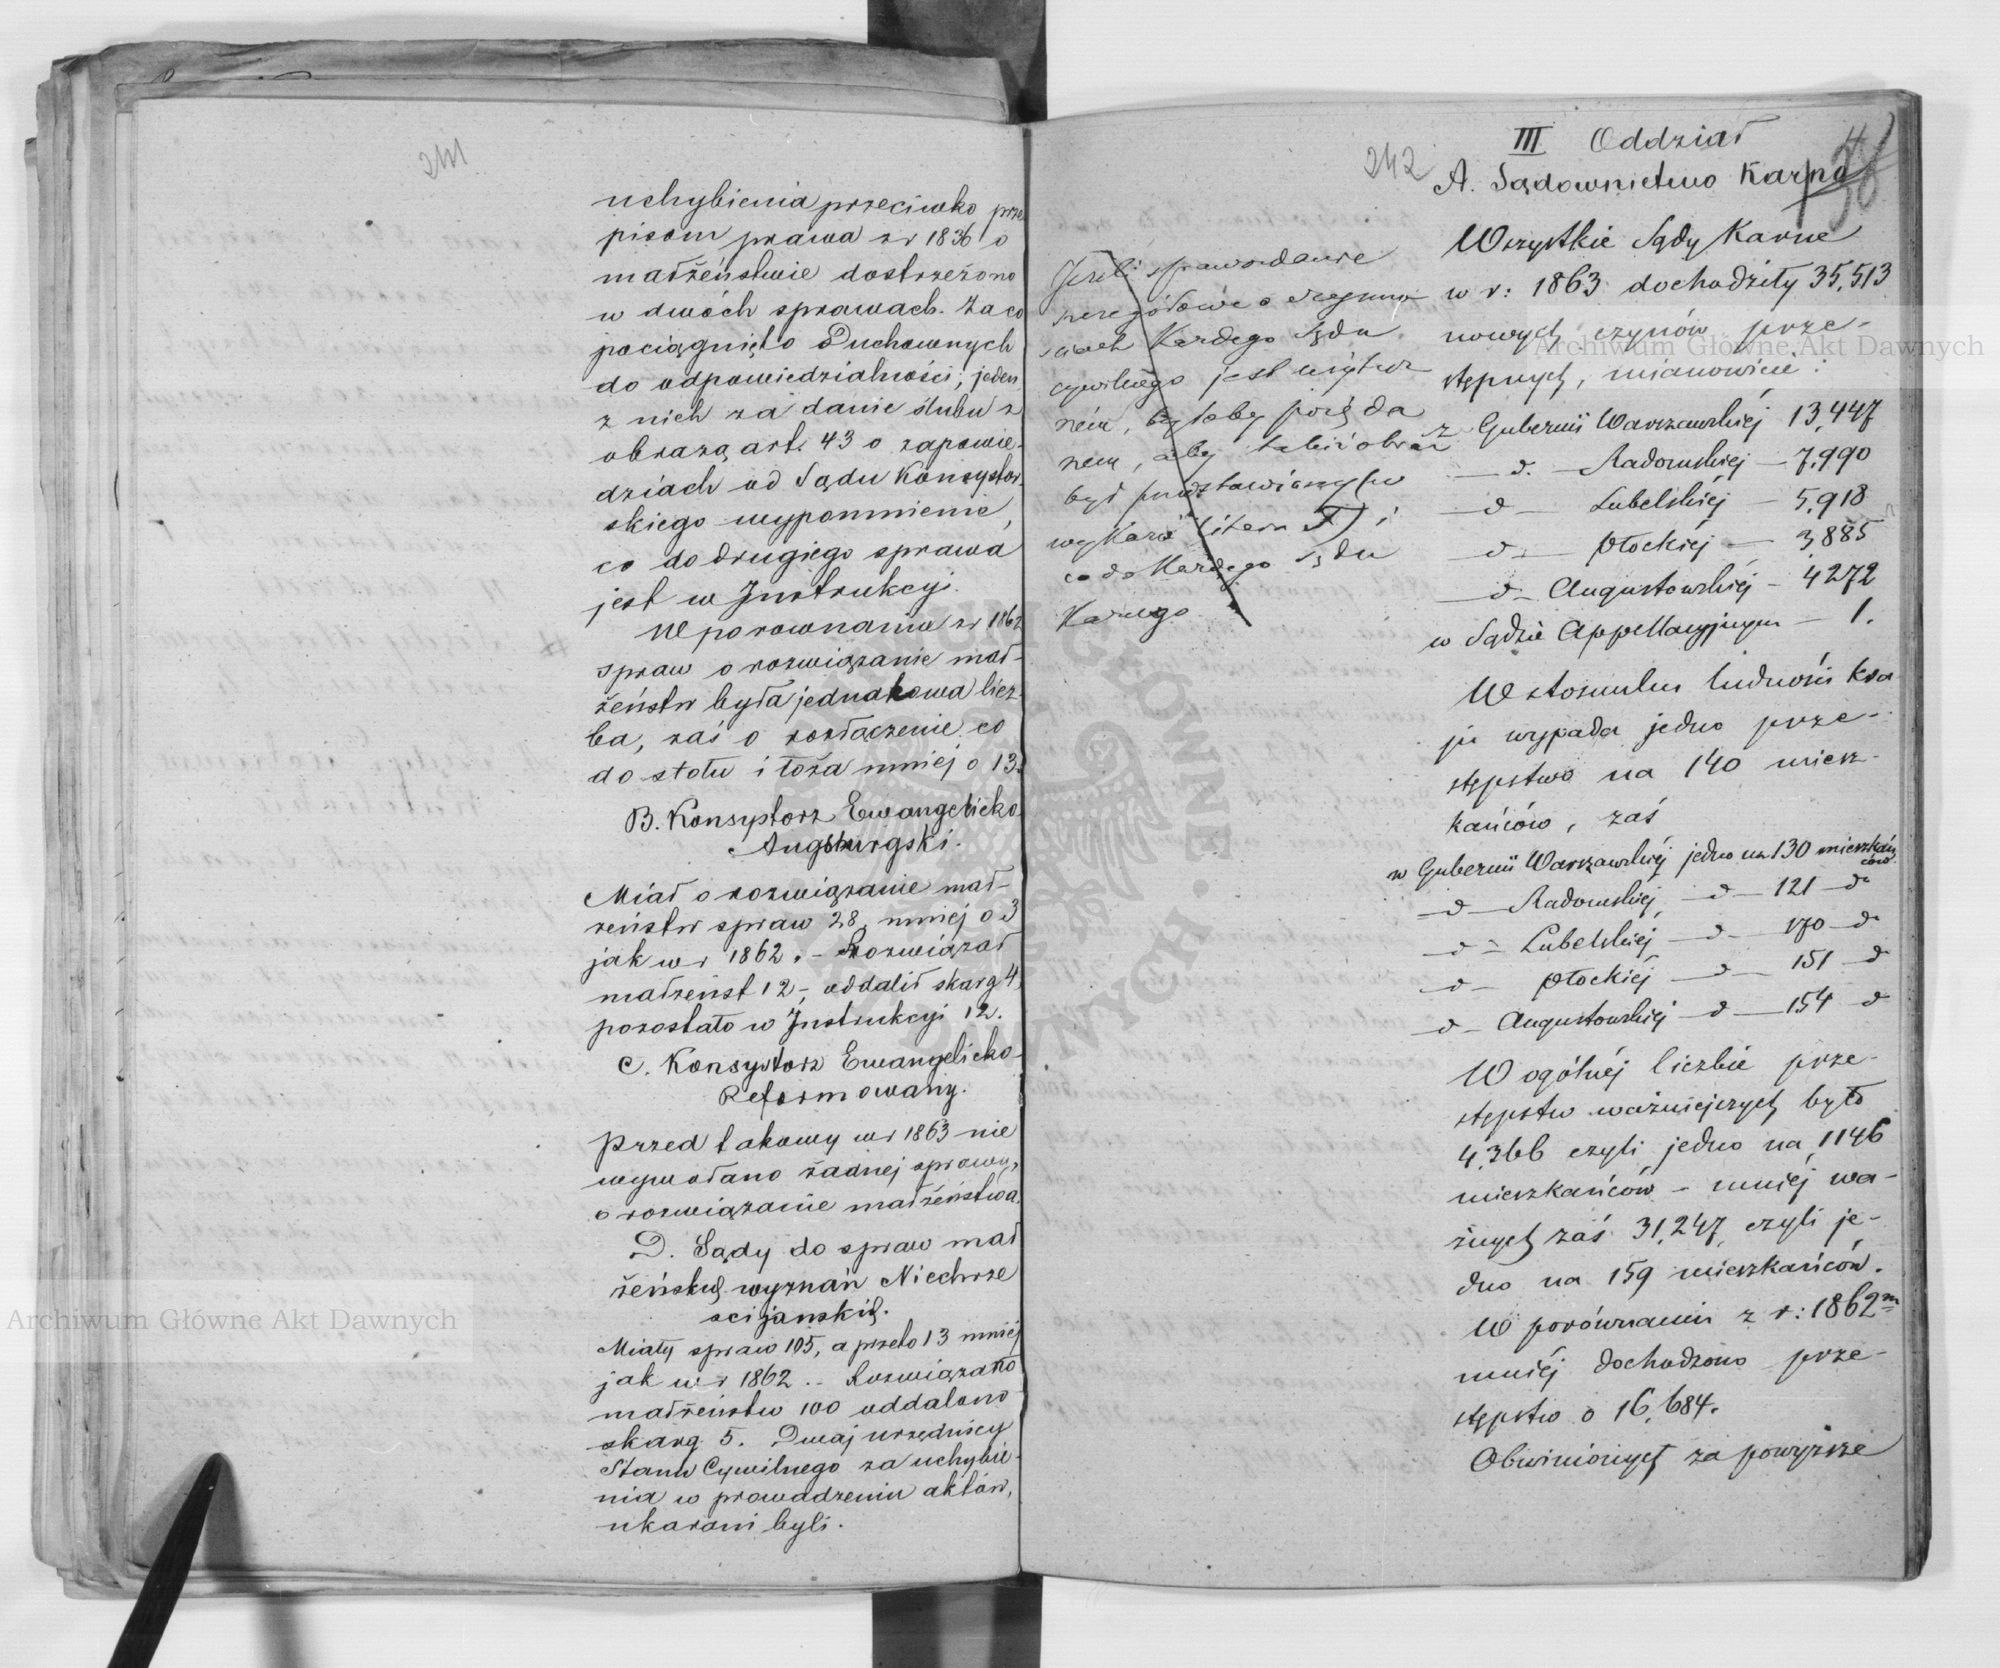 241
uchybienia przeciwko prze
pisom prawa z r 1836 o
małżeństwie dostrzeżono
w dwóch sprawach. Za co
pociągnięto Duchownych
do odpowiedzialności; jeden
z nich za danie ślubu z
obrazą art. 43 o zapowie-
dziach od Sądu Konsystor-
skiego wypomnienie,
co do drugiego sprawa
jest w Instrukcyi.
W porownaniu z r 1862
spraw o rozwiązanie mał-
żeństw była jednakowa licz-
ba, zaś o rozłączenie co
do stołu i łoża mniej o 13.
B. Konsystorz Ewangelicko
Augsburgski.
Miał o rozwiązanie mał-
żeństw spraw 28, mniej o 3
jak w r 1862. – Rozwiązał
małżeńst 12, oddalił skarg 4,
pozostało w Instrukcyi 12.
C. Konsystorz Ewangelicko-
Reformowany.
Przed takowy w r 1863 nie
wywołano żadnej sprawy,
o rozwiązanie małżeństwa.
D. Sądy do spraw mał
żeńskich wyznań Niechrze
scijanskich.
Miały spraw 105, a przeto 13 mniej
jak w r 1862. – Rozwiązano
małżeństw 100 oddalono
skarg 5. Dwaj urzędnicy
Stanu Cywilnego za uchybie-
nia w prowadzeniu aktów,
ukarani byli.
242
III Oddział
A. Sądownictwo Karne
38
Jeżeli sprawozdanie
szczegółowe o czynno
sciach Każdego Sądu
cywilnego jest użytecz
ném, byłoby pożąda
nem, aby takiż obraz
był przedstawiony w
wykazie litera F) i
co do Każdego Sądu
Karnego
Wszystkie Sądy Karne
w r: 1863 dochodziły 35,513
nowych czynów prze-
stępnych, mianowicie:
z Gubernii Warszawskiéj 13,447
— d. — Radomskiej — 7,990
— d — Lubelskiej — 5,918
— d — Płockiéj — 3,885
— d — Augustowskiéj – 4272
w Sądzie Appellacyjnym — 1.
W stosunku ludności kra
ju wypada jedno prze-
stępstwo na 140 miesz-
kańców, zaś
w Gubernii Warszawskiéj jedno na 130 mieszkań
ców
— d — Radomskiej — d — 121 — d
— d — Lubelskiej — d — 170 — d
— d — Płockiéj — d — 151 — d
— d — Augustowskiéj — d — 154 — d
W ogólnéj liczbie prze-
stępstw ważniejszych było
4,366 czyli jedno na 1146
mieszkańców – mniéj wa-
żnych zaś 31,247, czyli je-
dno na 159 mieszkańców.
W porównaniu z r: 1862m
mniéj dochodzono prze-
stępstw o 16,684.
Obwinionych za powyższe
Archiwum Główne Akt Dawnych
Archiwum Główne Akt Dawnych